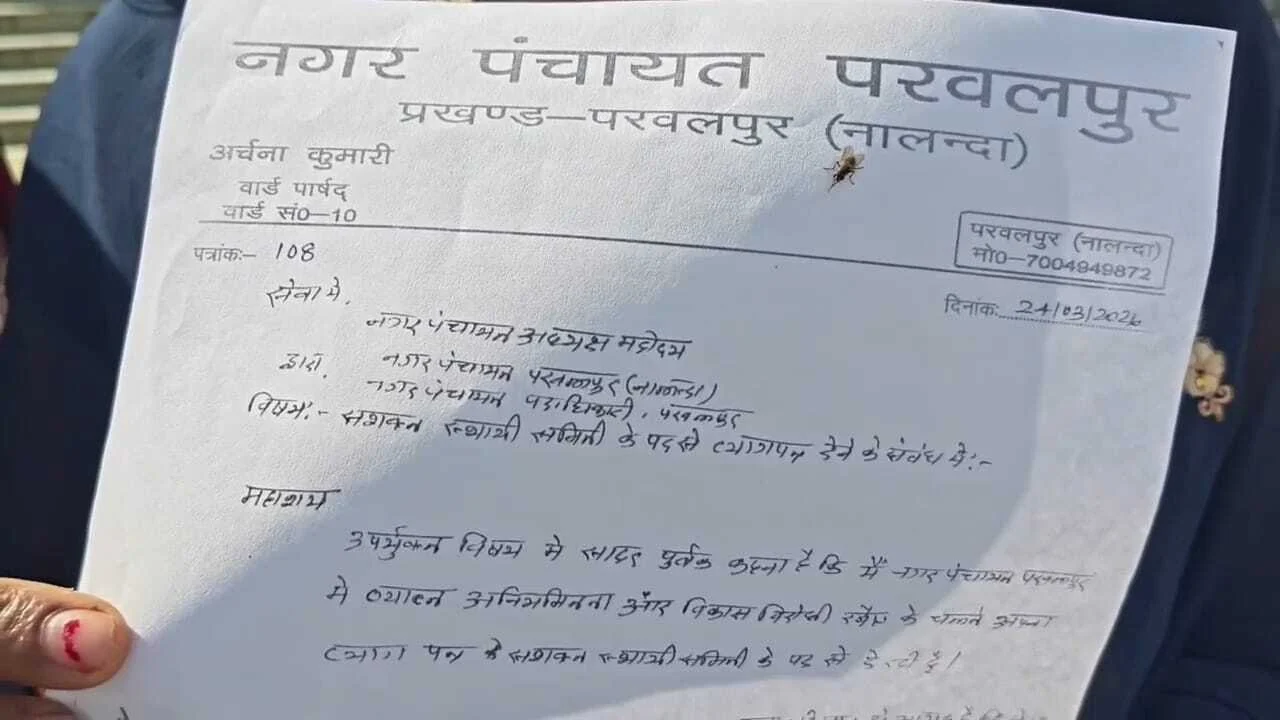 नगर पंचायत परवलपुर
प्रखण्ड–परवलपुर (नालन्दा)
अर्चना कुमारी
वार्ड पार्षद
वार्ड सं0–10
परवलपुर (नालन्दा)
मो0–7004949872
पत्रांकः– 108
दिनांकः 24/03/2026
सेवा मे,
नगर पंचायत अध्यक्ष महोदय
नगर पंचायत परवलपुर (नालन्दा)
द्वारा, नगर पंचायत पदाधिकारी, परवलपुर
विषय:- सशक्त स्थायी समिती के पद से त्यागपत्र देने के संबंध मे:-
महाशय
उपर्युक्त विषय मे सादर पुर्वक कहना है कि मैं नगर पंचायत परवलपुर
मे व्याप्त अनियमितता और विकास विरोधी रवैए के चलते अपना
त्याग पत्र के सशक्त स्थायी समिती के पद से दे रही हूँ।